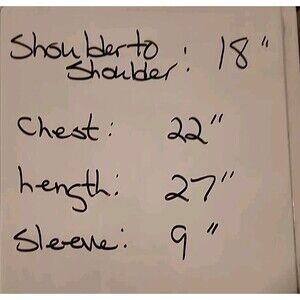 Shoulder to
Shoulder: 18"
Chest: 22"
Length: 27"
Sleeve: 9"